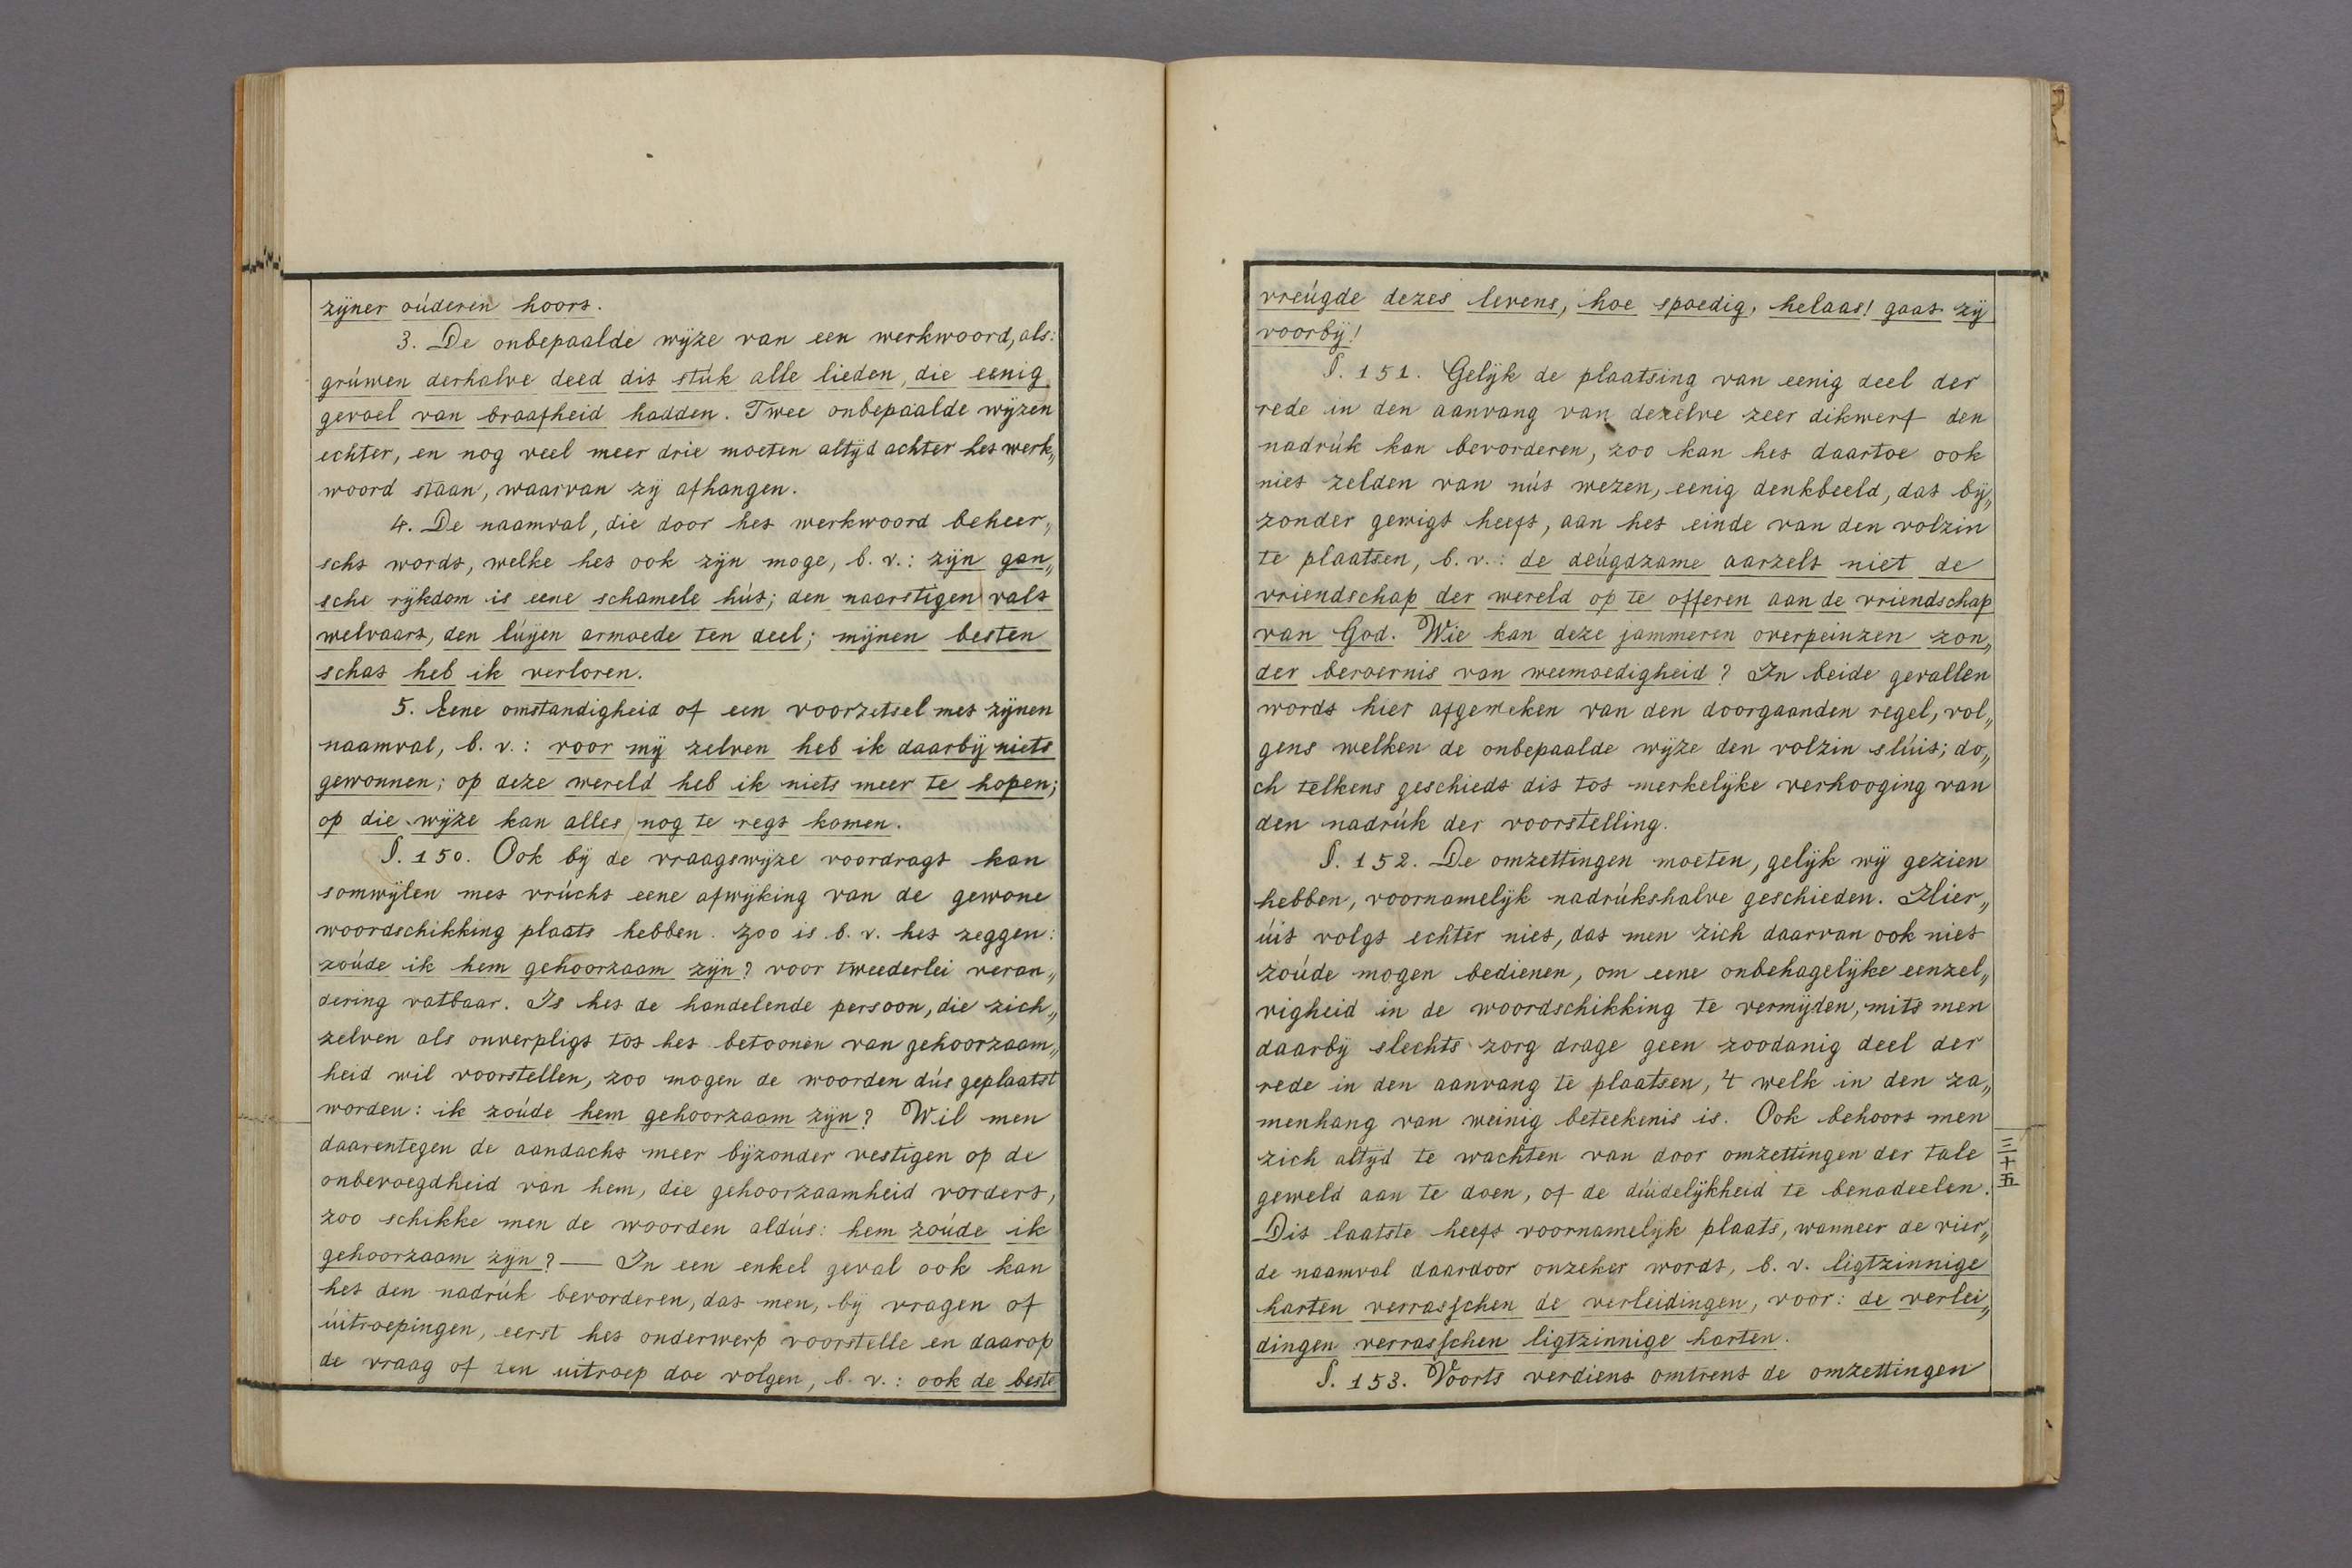 zijner oúderen hoort.
3. De onbepaalde wijze van een werkwoord, als:
grúwen derhalve deed dit stúk alle lieden, die eenig
gevoel van braafheid hadden. Twee onbepaalde wijzen
echter, en nog veel meer drie moeten altijd achter het werk„
woord staan, waarvan zij afhangen.
4. De naamval, die door het werkwoord beheer„
scht wordt, welke het ook zijn moge, b. v.: zijn gan„
sche rijkdom is eene schamele hút; den naarstigen valt
welvaart, den lúijen armoede ten deel; mijnen besten
schat heb ik verloren.
5. Eene omstandigheid of een voorzetsel met zijnen
naamval, b. v.: voor mij zelven heb ik daarbij niets
gewonnen; op deze wereld heb ik niets meer te hopen;
op die wijze kan alles nog te regt komen.
§. 150. Ook bij de vraagswijze voordragt kan
somwijlen met vrúcht eene afwijking van de gewone
woordschikking plaats hebben. Zoo is b. v. het zeggen:
zoúde ik hem gehoorzaam zijn? voor tweederlei veran„
dering vatbaar. Is het de handelende persoon, die zich„
zelven als onverpligt tot het betoonen van gehoorzaam„
heid wil voorstellen, zoo mogen de woorden dús geplaatst
worden: ik zoúde hem gehoorzaam zijn? Wil men
daarentegen de aandacht meer bijzonder vestigen op de
onbevoegdheid van hem, die gehoorzaamheid vordert,
zoo schikke men de woorden aldús: hem zoúde ik
gehoorzaam zijn? — In een enkel geval ook kan
het den nadrúk bevorderen, dat men, bij vragen of
úitroepingen, eerst het onderwerp voorstelle en daarop
de vraag of den uitroep doe volgen, b. v.: ook de beste
vreúgde dezes levens, hoe spoedig, helaas! gaat zij
voorbij!
§. 151. Gelijk de plaatsing van eenig deel der
rede in den aanvang van dezelve zeer dikwerf den
nadrúk kan bevorderen, zoo kan het daartoe ook
niet zelden van nút wezen, eenig denkbeeld, dat bij„
zonder gewigt heeft, aan het einde van den volzin
te plaatsen, b. v.: de deúgdzame aarzelt niet de
vriendschap der wereld op te offeren aan de vriendschap
van God. Wie kan deze jammeren overpeinzen zon„
der beroernis van weemoedigheid? In beide gevallen
wordt hier afgeweken van den doorgaanden regel, vol„
gens welken de onbepaalde wijze den volzin slúit; do„
ch telkens geschiedt dit tot merkelijke verhooging van
den nadrúk der voorstelling.
§. 152. De omzettingen moeten, gelijk wij gezien
hebben, voornamelijk nadrúkshalve geschieden. Hier„
úit volgt echter niet, dat men zich daarvan ook niet
zoúde mogen bedienen, om eene onbehagelijke eenzel„
vigheid in de woordschikking te vermijden, mits men
daarbij slechts zorg drage geen zoodanig deel der
rede in den aanvang te plaatsen, 't welk in den za„
menhang van weinig beteekenis is. Ook behoort men
zich altijd te wachten van door omzettingen der tale
geweld aan te doen, of de dúidelijkheid te benadeelen.
Dit laatste heeft voornamelijk plaats, wanneer de vier„
de naamval daardoor onzeker wordt, b. v. ligtzinnige
harten verrasschen de verleidingen, voor: de verlei„
dingen verrasschen ligtzinnige harten.
§. 153. Voorts verdient omtrent de omzettingen
三十五